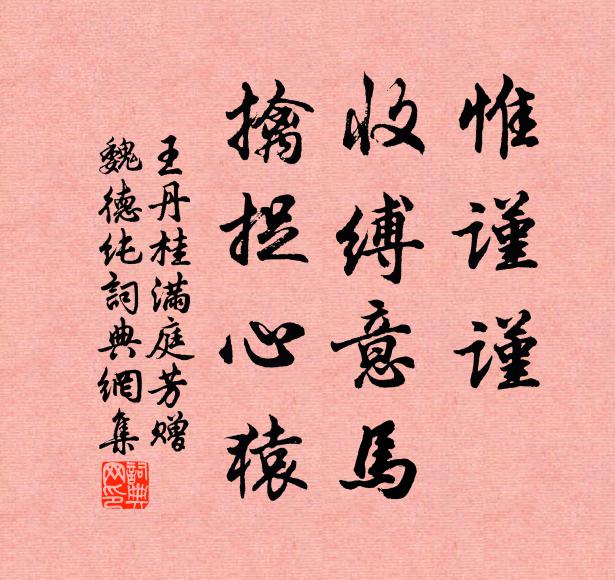 惟謹謹
收縛意馬
擒捉心猿
王丹桂滿庭芳贈
魏德純詞典網集
詞典
网印